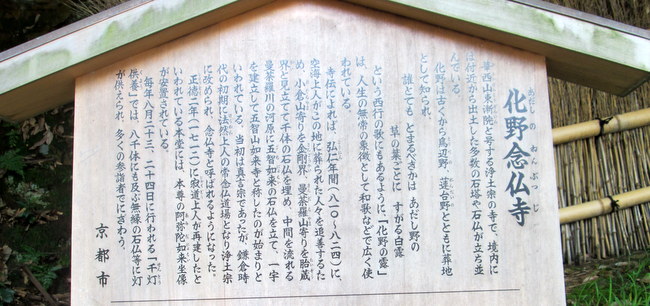 化野念仏寺
あだしの ねんぶつじ
華西山東漸院と号する浄土宗の寺で、境内に
は付近から出土した多数の石塔や石仏が立ち並
んでいる。
化野は古くから鳥辺野、蓮台野とともに葬地
として知られ、
誰とても とまるべきかは あだし野の
草の葉ごとに すがる白露
という西行の歌にもあるように「化野の露」
は、人生の無常の象徴として和歌などで広く使
われている。
寺伝によれば、弘仁年間(八一〇〜八二四)に、
空海上人がこの地に葬られた人々を追善するた
め、小倉山寄りを金剛界、曼荼羅山寄りを胎蔵
界と見立てて千体の石仏を埋め、中間を流れる
曼荼羅川の河原に五智如来の石仏を立て、一宇
を建立して五智山如来寺と称したのが始まりと
いわれている。当初は真言宗であったが、鎌倉時
代の初期に法然上人の常念仏道場となり浄土宗
に改められ、念仏寺と呼ばれるようになった。
正徳二年(一七一二)に寂道上人が再建したと
いわれている本堂には、本尊の阿弥陀如来坐像
が安置されている。
毎年八月二十三、二十四日に行われる「千灯
供養」では、八千体にも及ぶ無縁の石仏等に灯
が供えられ、多くの参詣者でにぎわう。
京都市